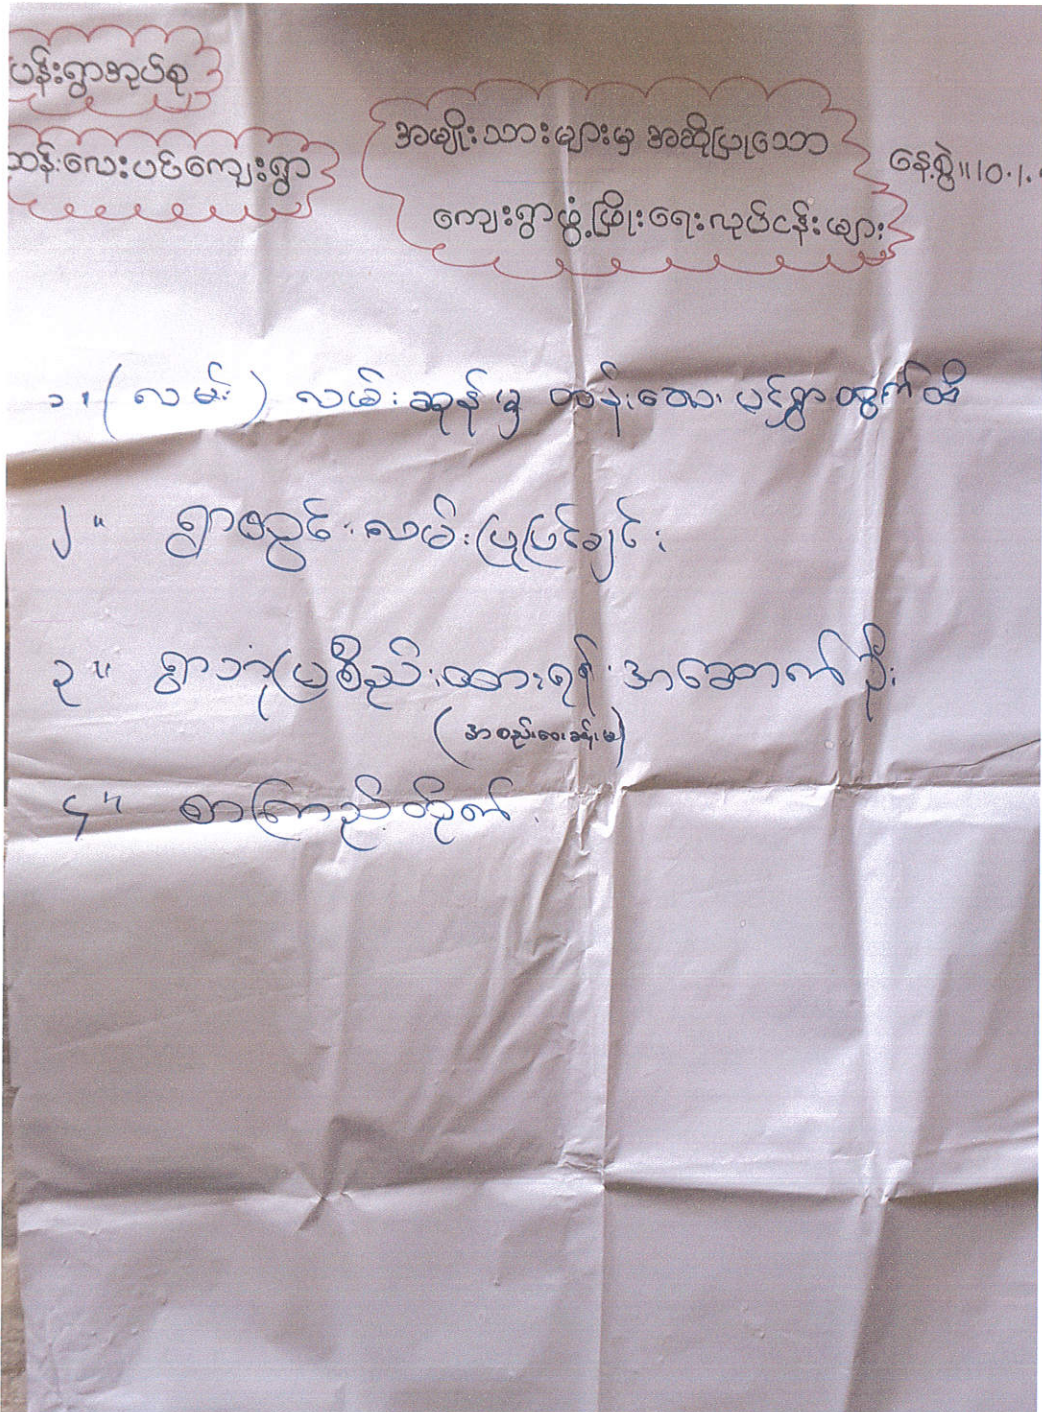 ပန်းရွာအုပ်စု
ဆန်းလေးပင်ကျေးရွာ
အမျိုးသားများမှ အဆိုပြုသော
ကျေးရွာဖွံ့ဖြိုးရေးလုပ်ငန်းများ
နေ့စွဲ။ ။10.1.
၁။ (လမ်း) လမ်းဆုန်မှ တန်းလေးပင်ရွာထွက်ထိ
၂။ ရွာတွင်းလမ်းပြုပြင်ချင်း
၃။ ရွာဘုံပစ္စည်းထားရန် အဆောက်ဦး
(အစည်းဝေးခန်းမ)
၄။ စာကြည့်တိုက်